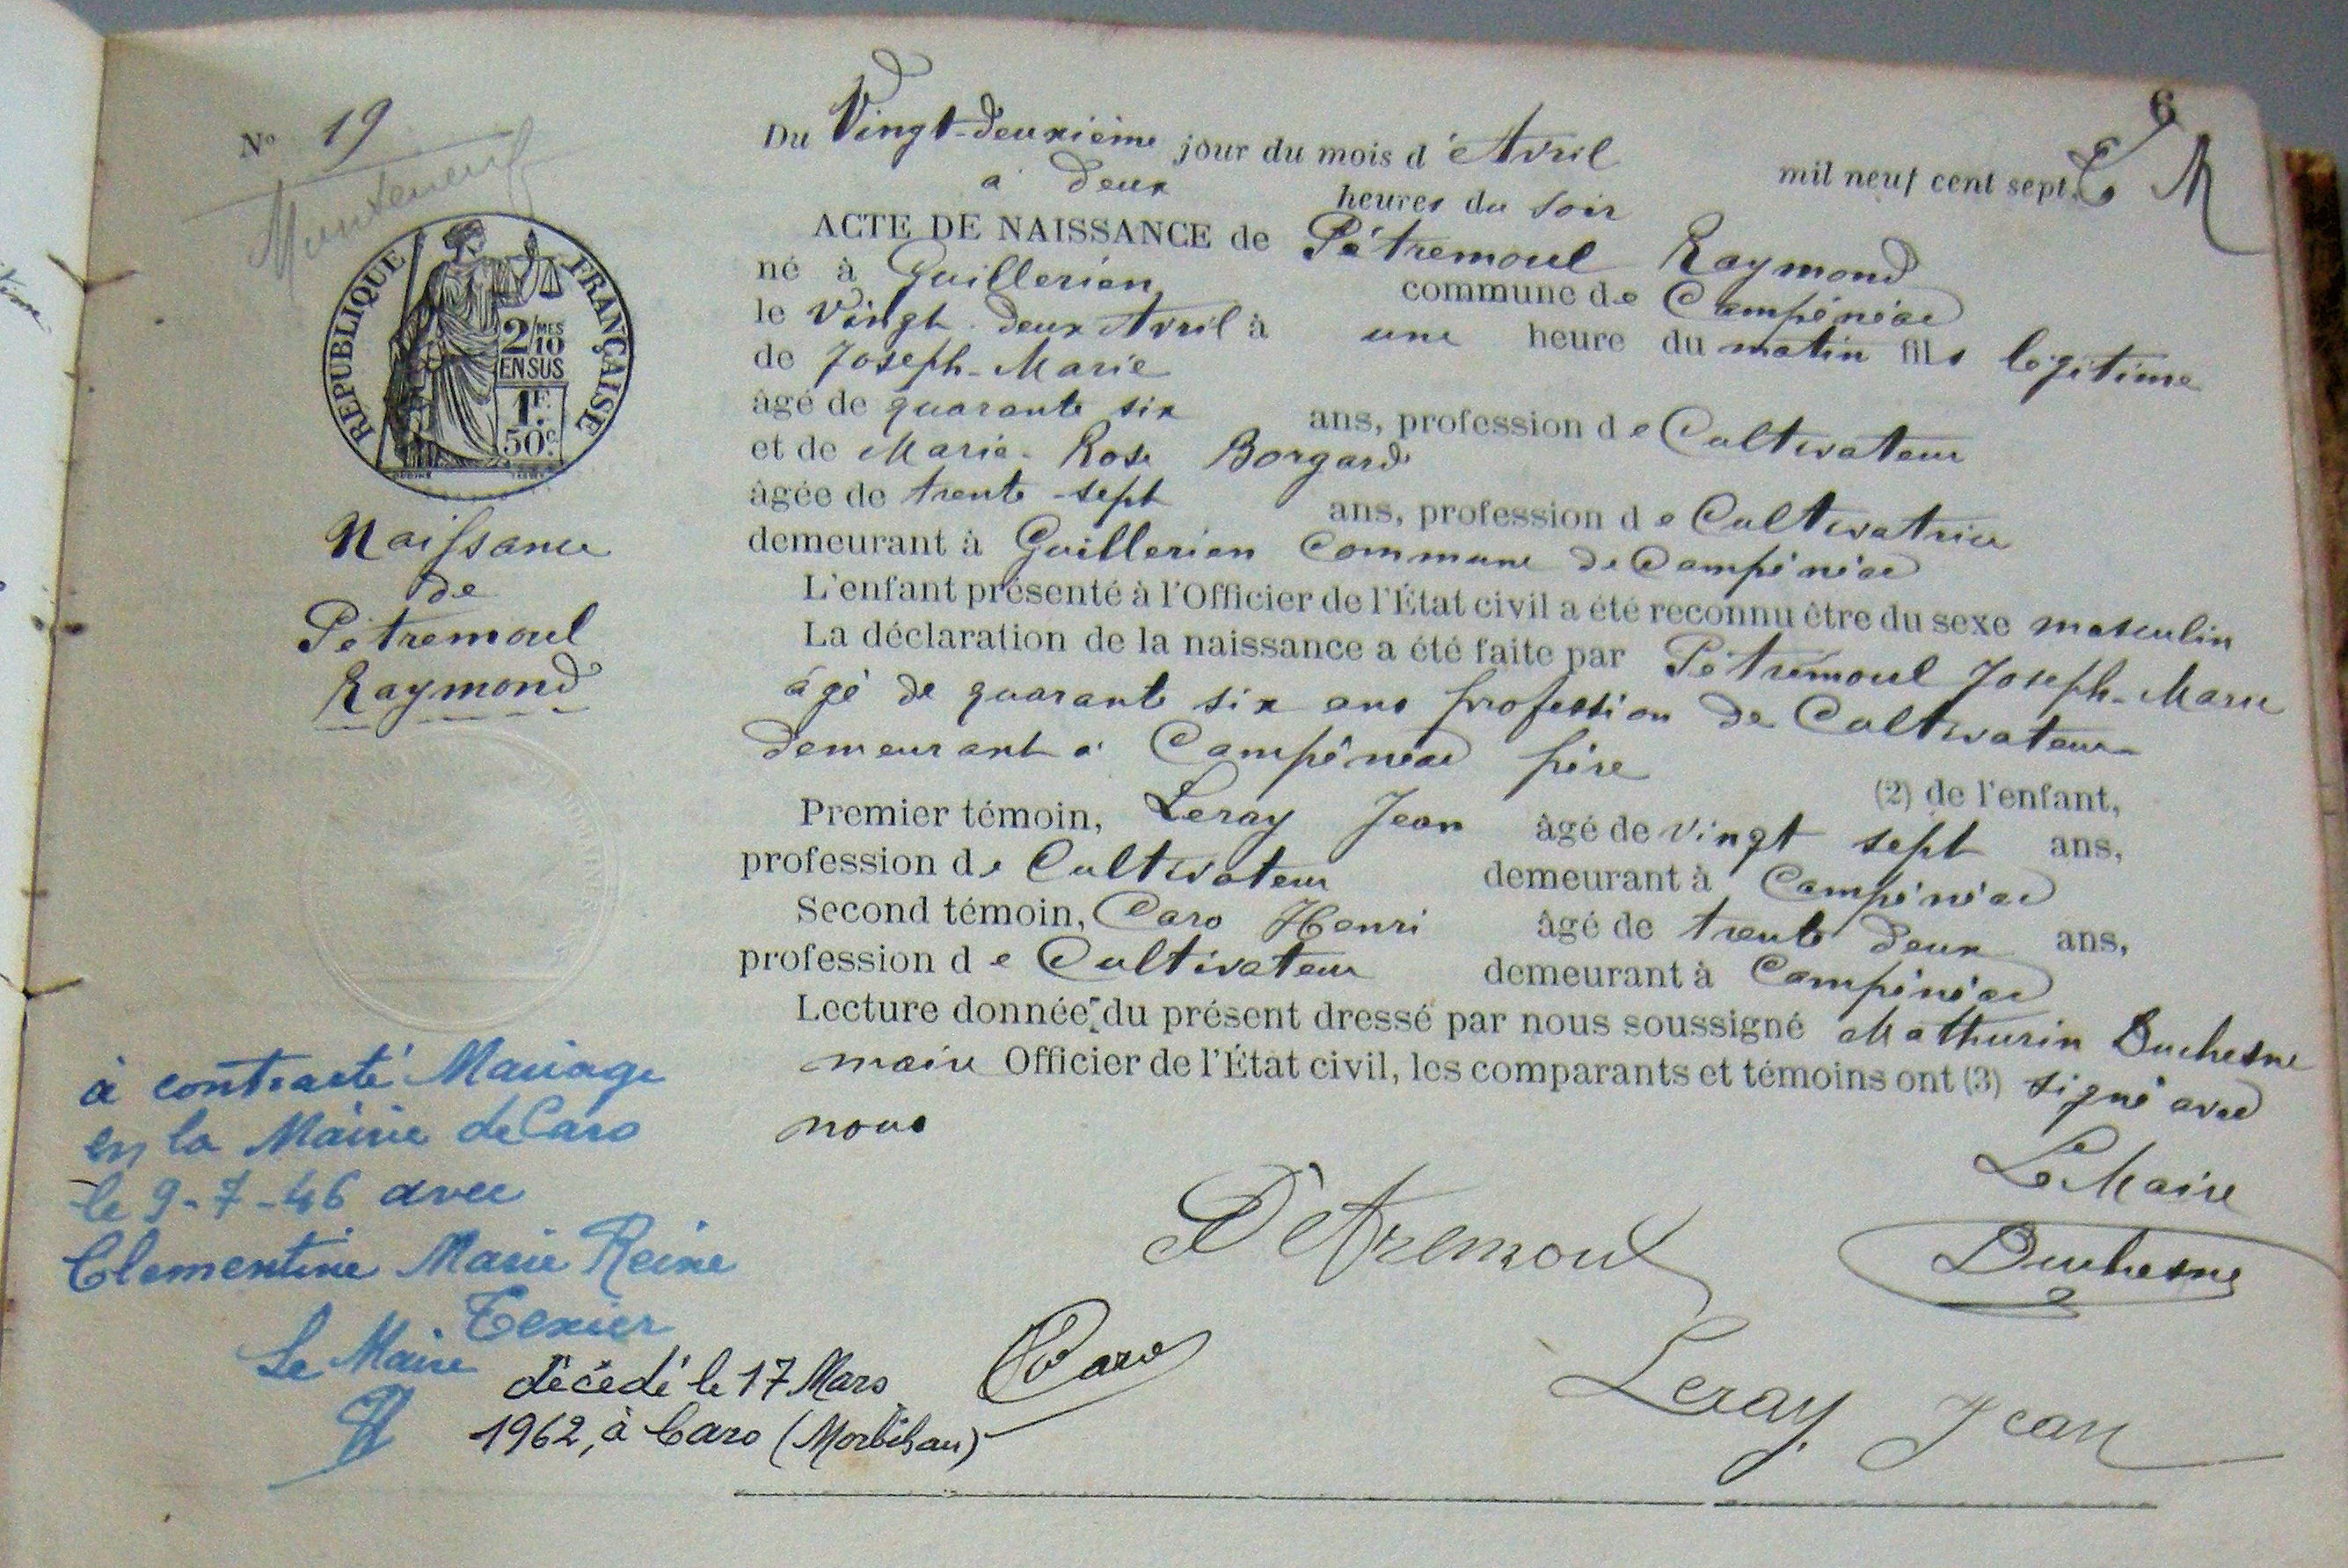 6
N° 19
Du Vingt-deuxième jour du mois d'Avril mil neuf cent sept
à deux heures du soir
ACTE DE NAISSANCE de Pétremoul Raymond
né à Guillerien commune de Campénéac
le vingt-deux Avril à une heure du matin fils légitime
de Joseph-Marie
âgé de quarante six ans, profession de Cultivateur
et de Marie-Rose Borgard
âgée de trente-sept ans, profession de Cultivatrice
demeurant à Guillerien Commune de Campénéac
L'enfant présenté à l'Officier de l'État civil a été reconnu être du sexe masculin
La déclaration de la naissance a été faite par Pétremoul Joseph-Marie
âgé de quarante six ans profession de Cultivateur
demeurant à Campénéac père (2) de l'enfant,
Premier témoin, Leray Jean âgé de vingt sept ans,
profession de Cultivateur demeurant à Campénéac
Second témoin, Caro Henri âgé de trente deux ans,
profession de Cultivateur demeurant à Campénéac
Lecture donnée du présent dressé par nous soussigné Mathurin Duchesne
maire Officier de l'État civil, les comparants et témoins ont (3) signé avec
nous
Le Maire
Pétremoul
Duchesne
Caro
Leray Jean
RÉPUBLIQUE FRANÇAISE
2/MES
10
EN SUS
1F.
50c.
Naissance
de
Pétremoul
Raymond
à contracté Mariage
en la Mairie de Caro
le 9-7-46 avec
Clementine Marie Reine
Texier
Le Maire
décédé le 17 Mars
1962, à Caro (Morbihan)